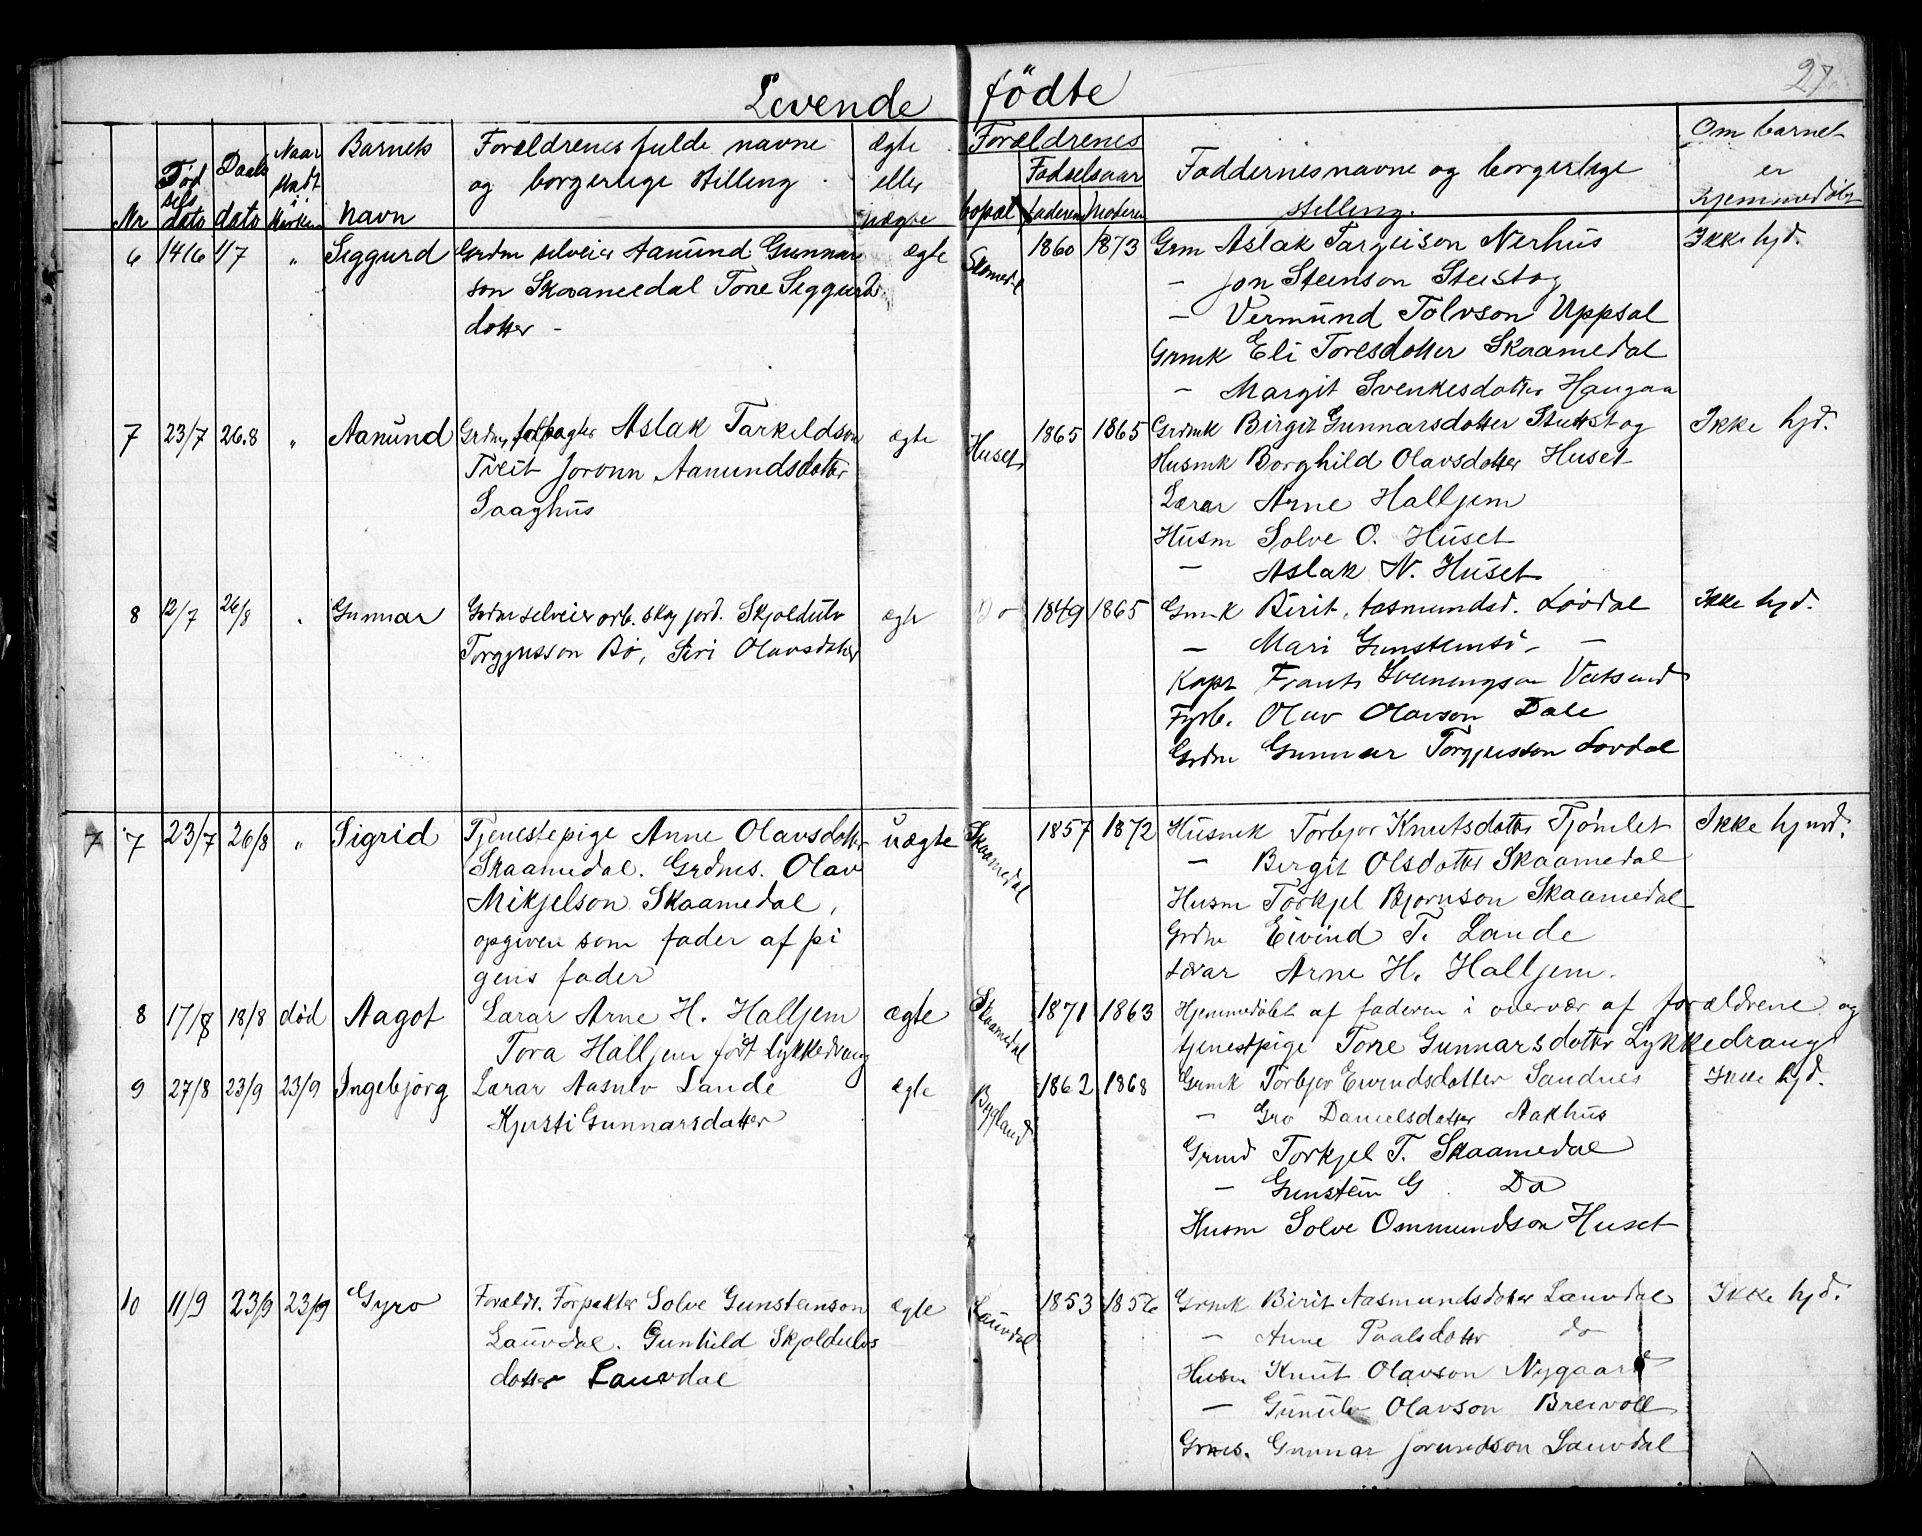 27
Levende fødte
Nr
Fødselsdato
Daabsdato
Naar stadt i kirken
Barnets navn
Forældrenes fulde navne og borgerlige stilling.
Ægte eller uægte
Forældrenes
bopæl
Fødselsaar
faderen Moderen
Faddernes navne og borgerlige stilling.
Om barnet er hjemmedøbt
6 14/6 1/7 „ Siggurd Grdm selveier Aanund Gunnar ægte Skomedal 1860 1873 Grm Aslak Targeison Nerhus Ikke hjd.
son Skaamedal Tone Siggurds — Jon Steinson
dotter — — Vermund Tolvson Uppsal
Grmk Eli Toresdotter Skaamedal
— Margit Svenkesdotter Haugaa
7 23/7 26.8 „ Aanund Grdm, forpagter Aslak Tarkeldson ægte Huset 1865 1865 Grdmk Birgit Gunnarsdotter Stuttstog Ikke hjd.
Tveit Joronn Aamundsdotter Husmk Borghild Olavsdotter Huset
Saaghus Lærar Arne Halljem
Husm Solve O. Huset
— Aslak N. Huset
8 12/7 26/8 . Gunnar Grdm selveier arb. skog jord. Skjoldulv ægte Do 1849 1865 Grmk Birit Aasmundsd. Lovdal Ikke hjd.
Torgjusson Bø, Siri Olavsdotter — Mari —
Kapt Frants
Fyrb. Olav Olavson Dale
Grdm Gunnar Torgjusson Lovdal
7 7 23/7 26/8 „ Sigrid Tjenestepige Anne Olavsdotter uægte Skaamedal 1857 1872 Husmk Torbjor Knutsdotter Tjomlet Ikke hjmd.
Skaamedal. Grdms. Olav — Bergit Olsdotter Skaamedal
Mikjelson Skaamedal, Husm Torkjel Bjornson Skaamedal
opgiven som fader af pi Grdm Eivind T. Lande
gens fader Lærar Arne H. Halljem.
8 17/8 18/8 død Aagot Lærar Arne H. Halljem ægte Skaamedal 1871 1863 Hjemmedøbt af faderen i overvær af forældrene og
Tora Halljem født Lykkedrang tjenestpige Tone Gunnarsdotter Lykkedrang
9 27/8 23/9 23/9 Ingebjørg Lærar Aasulv Lande ægte Bygland 1862 1868 Grmk Torbjor Eivindsdotter Sandnes Ikke hjd.
Kjersti Gunnarsdotter — Gro Danielsdotter Aakhus
Grmd Torkjel T. Skaamedal
— Gunstein G. Do
Husm Solve Ommundson Huset
10 11/9 23/9 23/9 Gyro Forældr. Forpakter Solve Gunsteinson ægte Lauvdal 1853 1856 Grmk Birit Aasmundsdotter Lauvdal Ikke hjd.
Lauvdal. Gunhild Skjoldulvs — Anne Paalsdotter do
dotter Lauvdal Husm Knut Olavson Nygaard
— Gunulv Olavson Breivoll
Grms. Gunnar Jorundson Lauvdal